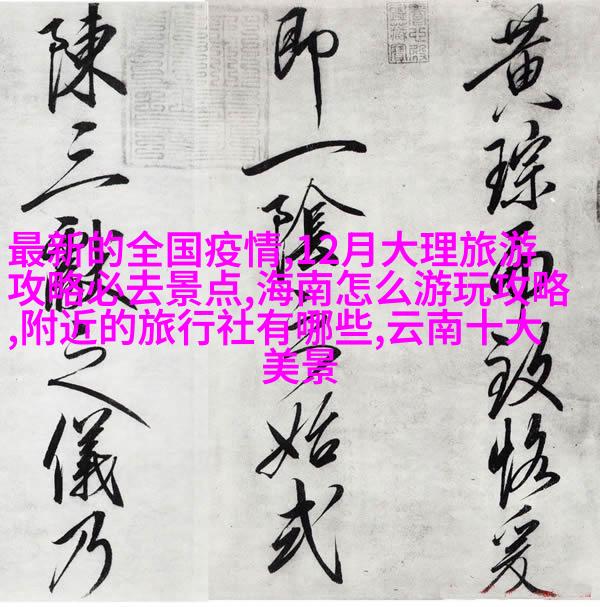 黃琮而致恪爰
即一陰始式
陳三獻之儀乃
最新的全国疫情,12月大理旅游
攻略必去景点,海南怎么游玩攻略
,附近的旅行社有哪些,云南十大
美景